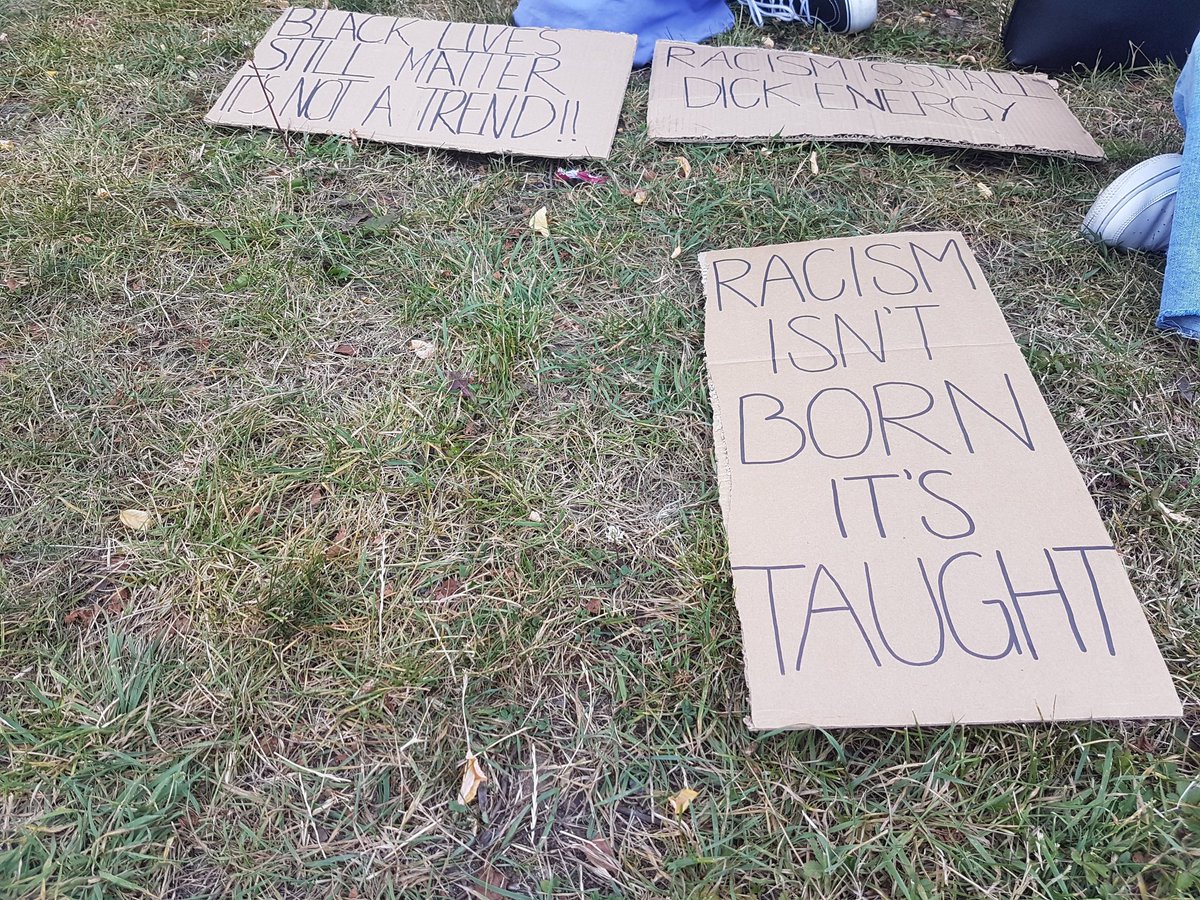 BLACK LIVES
STILL MATTER
IT'S NOT A TREND!!
RACISM IS SMALL
DICK ENERGY
RACISM
ISN'T
BORN
IT'S
TAUGHT